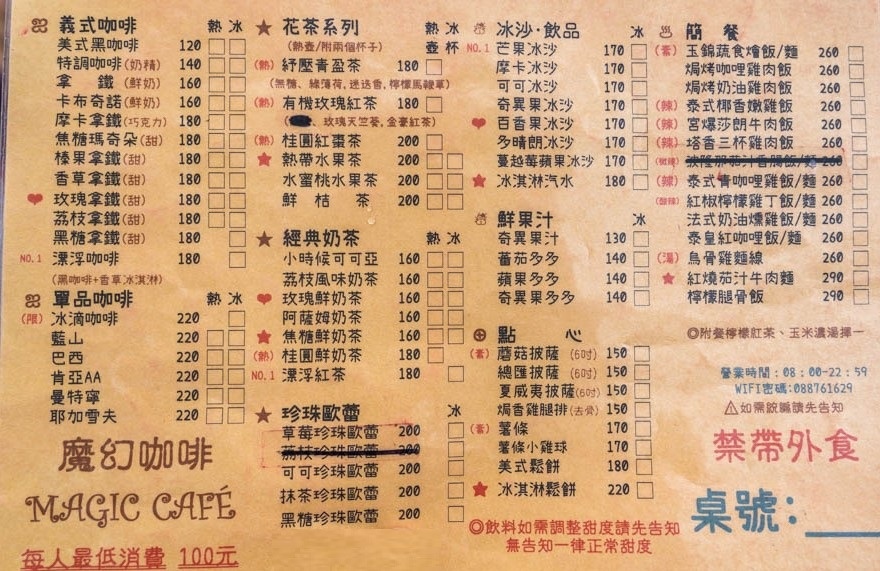 義式咖啡 熱 冰
美式黑咖啡 120
特調咖啡(奶精) 140
拿 鐵 (鮮奶) 160
卡布奇諾(鮮奶) 160
摩卡拿鐵(巧克力) 180
焦糖瑪奇朵(甜) 180
榛果拿鐵(甜) 180
香草拿鐵(甜) 180
玫瑰拿鐵(甜) 180
荔枝拿鐵(甜) 180
黑糖拿鐵(甜) 180
NO.1 漂浮咖啡 180
(黑咖啡+香草冰淇淋)
單品咖啡 熱 冰
(限) 冰滴咖啡 220
藍山 220
巴西 220
肯亞AA 220
曼特寧 220
耶加雪夫 220
魔幻咖啡
MAGIC CAFÉ
每人最低消費 100元
花茶系列 熱 冰
(熱壺/附兩個杯子) 壺 杯
(熱) 紓壓青盈茶 180
(無糖、綠薄荷,迷迭香,檸檬馬鞭草)
(熱) 有機玫瑰紅茶 180
、玫瑰天竺葵,金毫紅茶)
(熱) 桂圓紅棗茶 200
熱帶水果茶 200
水蜜桃水果茶 200
鮮 桔 茶 200
經典奶茶 熱 冰
小時候可可亞 160
荔枝風味奶茶 160
玫瑰鮮奶茶 160
阿薩姆奶茶 160
焦糖鮮奶茶 160
(熱) 桂圓鮮奶茶 180
NO.1 漂浮紅茶 180
珍珠歐蕾 冰
草莓珍珠歐蕾 200
荔枝珍珠歐蕾 200
可可珍珠歐蕾 200
抹茶珍珠歐蕾 200
黑糖珍珠歐蕾 200
冰沙·飲品 冰
NO.1 芒果冰沙 170
摩卡冰沙 170
可可冰沙 170
奇異果冰沙 170
百香果冰沙 170
多晴朗冰沙 170
蔓越莓蘋果冰沙 170
冰淇淋汽水 180
鮮果汁 冰
奇異果汁 130
蕃茄多多 140
蘋果多多 140
奇異果多多 140
點 心
(素) 蘑菇披薩 (6吋) 150
總匯披薩 (6吋) 150
夏威夷披薩(6吋) 150
焗香雞腿排(去骨) 150
(素) 薯條 170
薯條小雞球 170
美式鬆餅 180
冰淇淋鬆餅 220
◎飲料如需調整甜度請先告知
無告知一律正常甜度
簡 餐
(素) 玉錦蔬食燴飯/麵 260
焗烤咖哩雞肉飯 260
焗烤奶油雞肉飯 260
(辣) 泰式椰香嫩雞飯 260
(辣) 宮爆莎朗牛肉飯 260
(辣) 塔香三杯雞肉飯 260
飯/麵 260
(辣) 泰式青咖哩雞飯/麵 260
(酸辣) 紅椒檸檬雞丁飯/麵 260
法式奶油燻雞飯/麵 260
泰皇紅咖哩飯/麵 260
(湯) 烏骨雞麵線 260
紅燒茄汁牛肉麵 290
檸檬腿骨飯 290
◎附餐檸檬紅茶、玉米濃湯擇一
營業時間:08:00-22:59
WIFI密碼:088761629
⚠如需跛騙請先告知
禁帶外食
桌號: